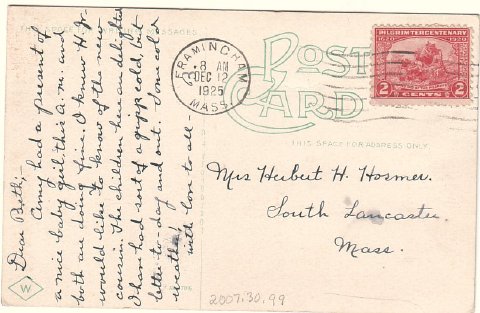 THIS SPACE FOR MESSAGES
Dear Beth;-
Amy had a present of
a nice baby girl this a. m. and
both are doing fine. I knew H. Jr.
would like to know of the new
cousin. The children here are delighted
I han had sort of a grippe cold but
better to-day and out. Some cold
weather!
with lov to all-
W
FRAMINGHAM
DEC 12
8 AM
1925
MASS.
POST CARD
PILGRIM TERCENTENARY
1620 1920
2 CENTS 2
THIS SPACE FOR ADDRESS ONLY
Mrs Herbert H. Hosmer.
South Lancaster
Mass.
2007.30.99